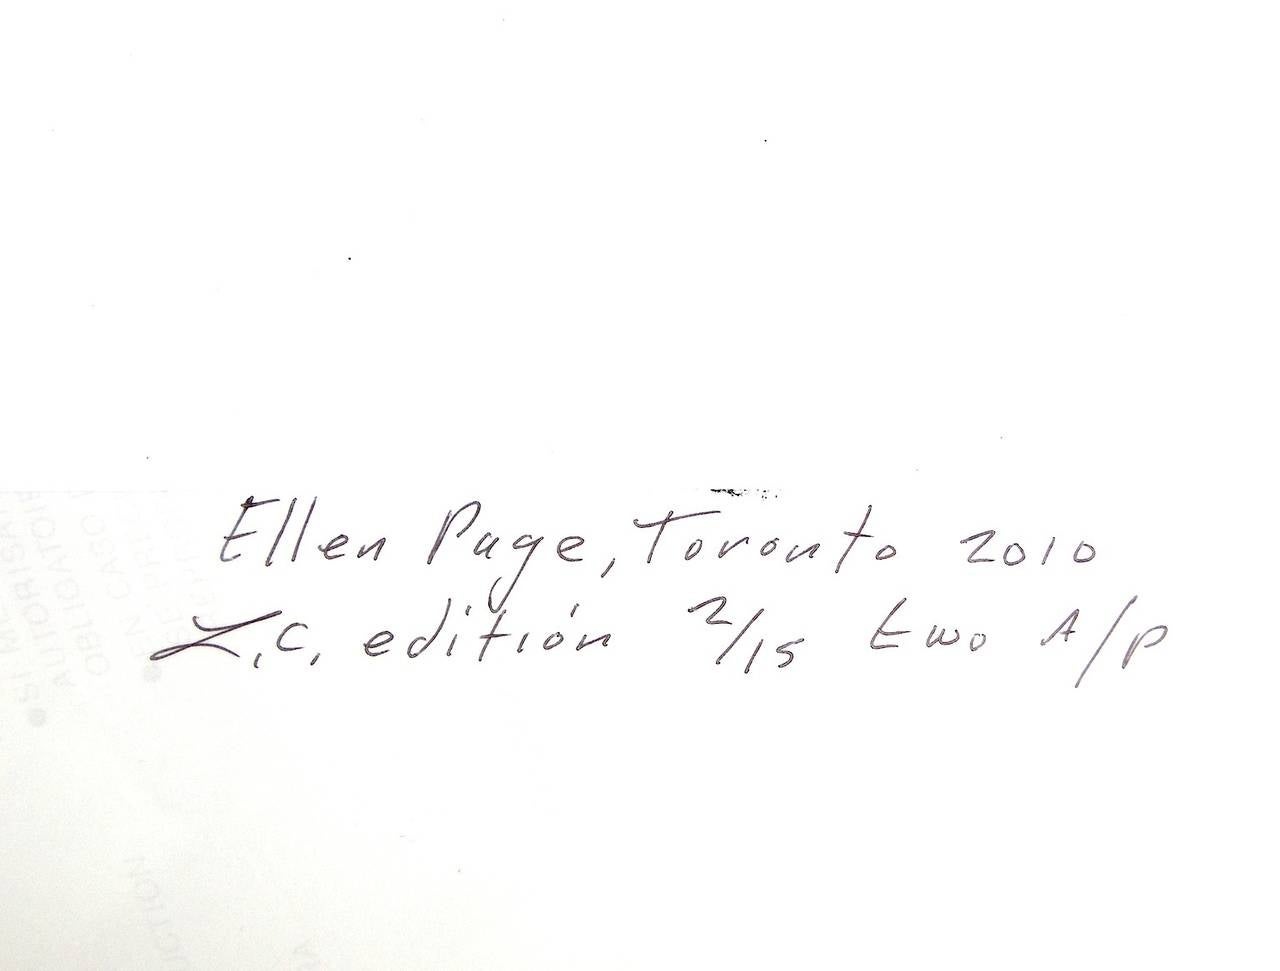 Ellen Page, Toronto 2010
L.C. editión 2/15 two A/P